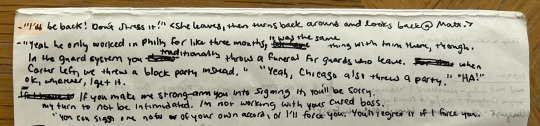 - "I'll be back! Don't stress it!" <she leaves, then turns back around and looks back @ Matt.>
- "Yeah he only worked in Philly for like three months, it was the same thing with him there, though.
In the guard system you traditionally throw a funeral for guards who leave. when
Carter left, we threw a block party instead." "Yeah, Chicago also threw a party." "HA!"
OK, whatever, I get it.
If you make me strong-arm you into signing it, you'll be sorry.
my turn to not be intimidated. I'm not working with your cured boss.
"You can sign one now of your own accord or I'll force you. You'll regret it if I force you.